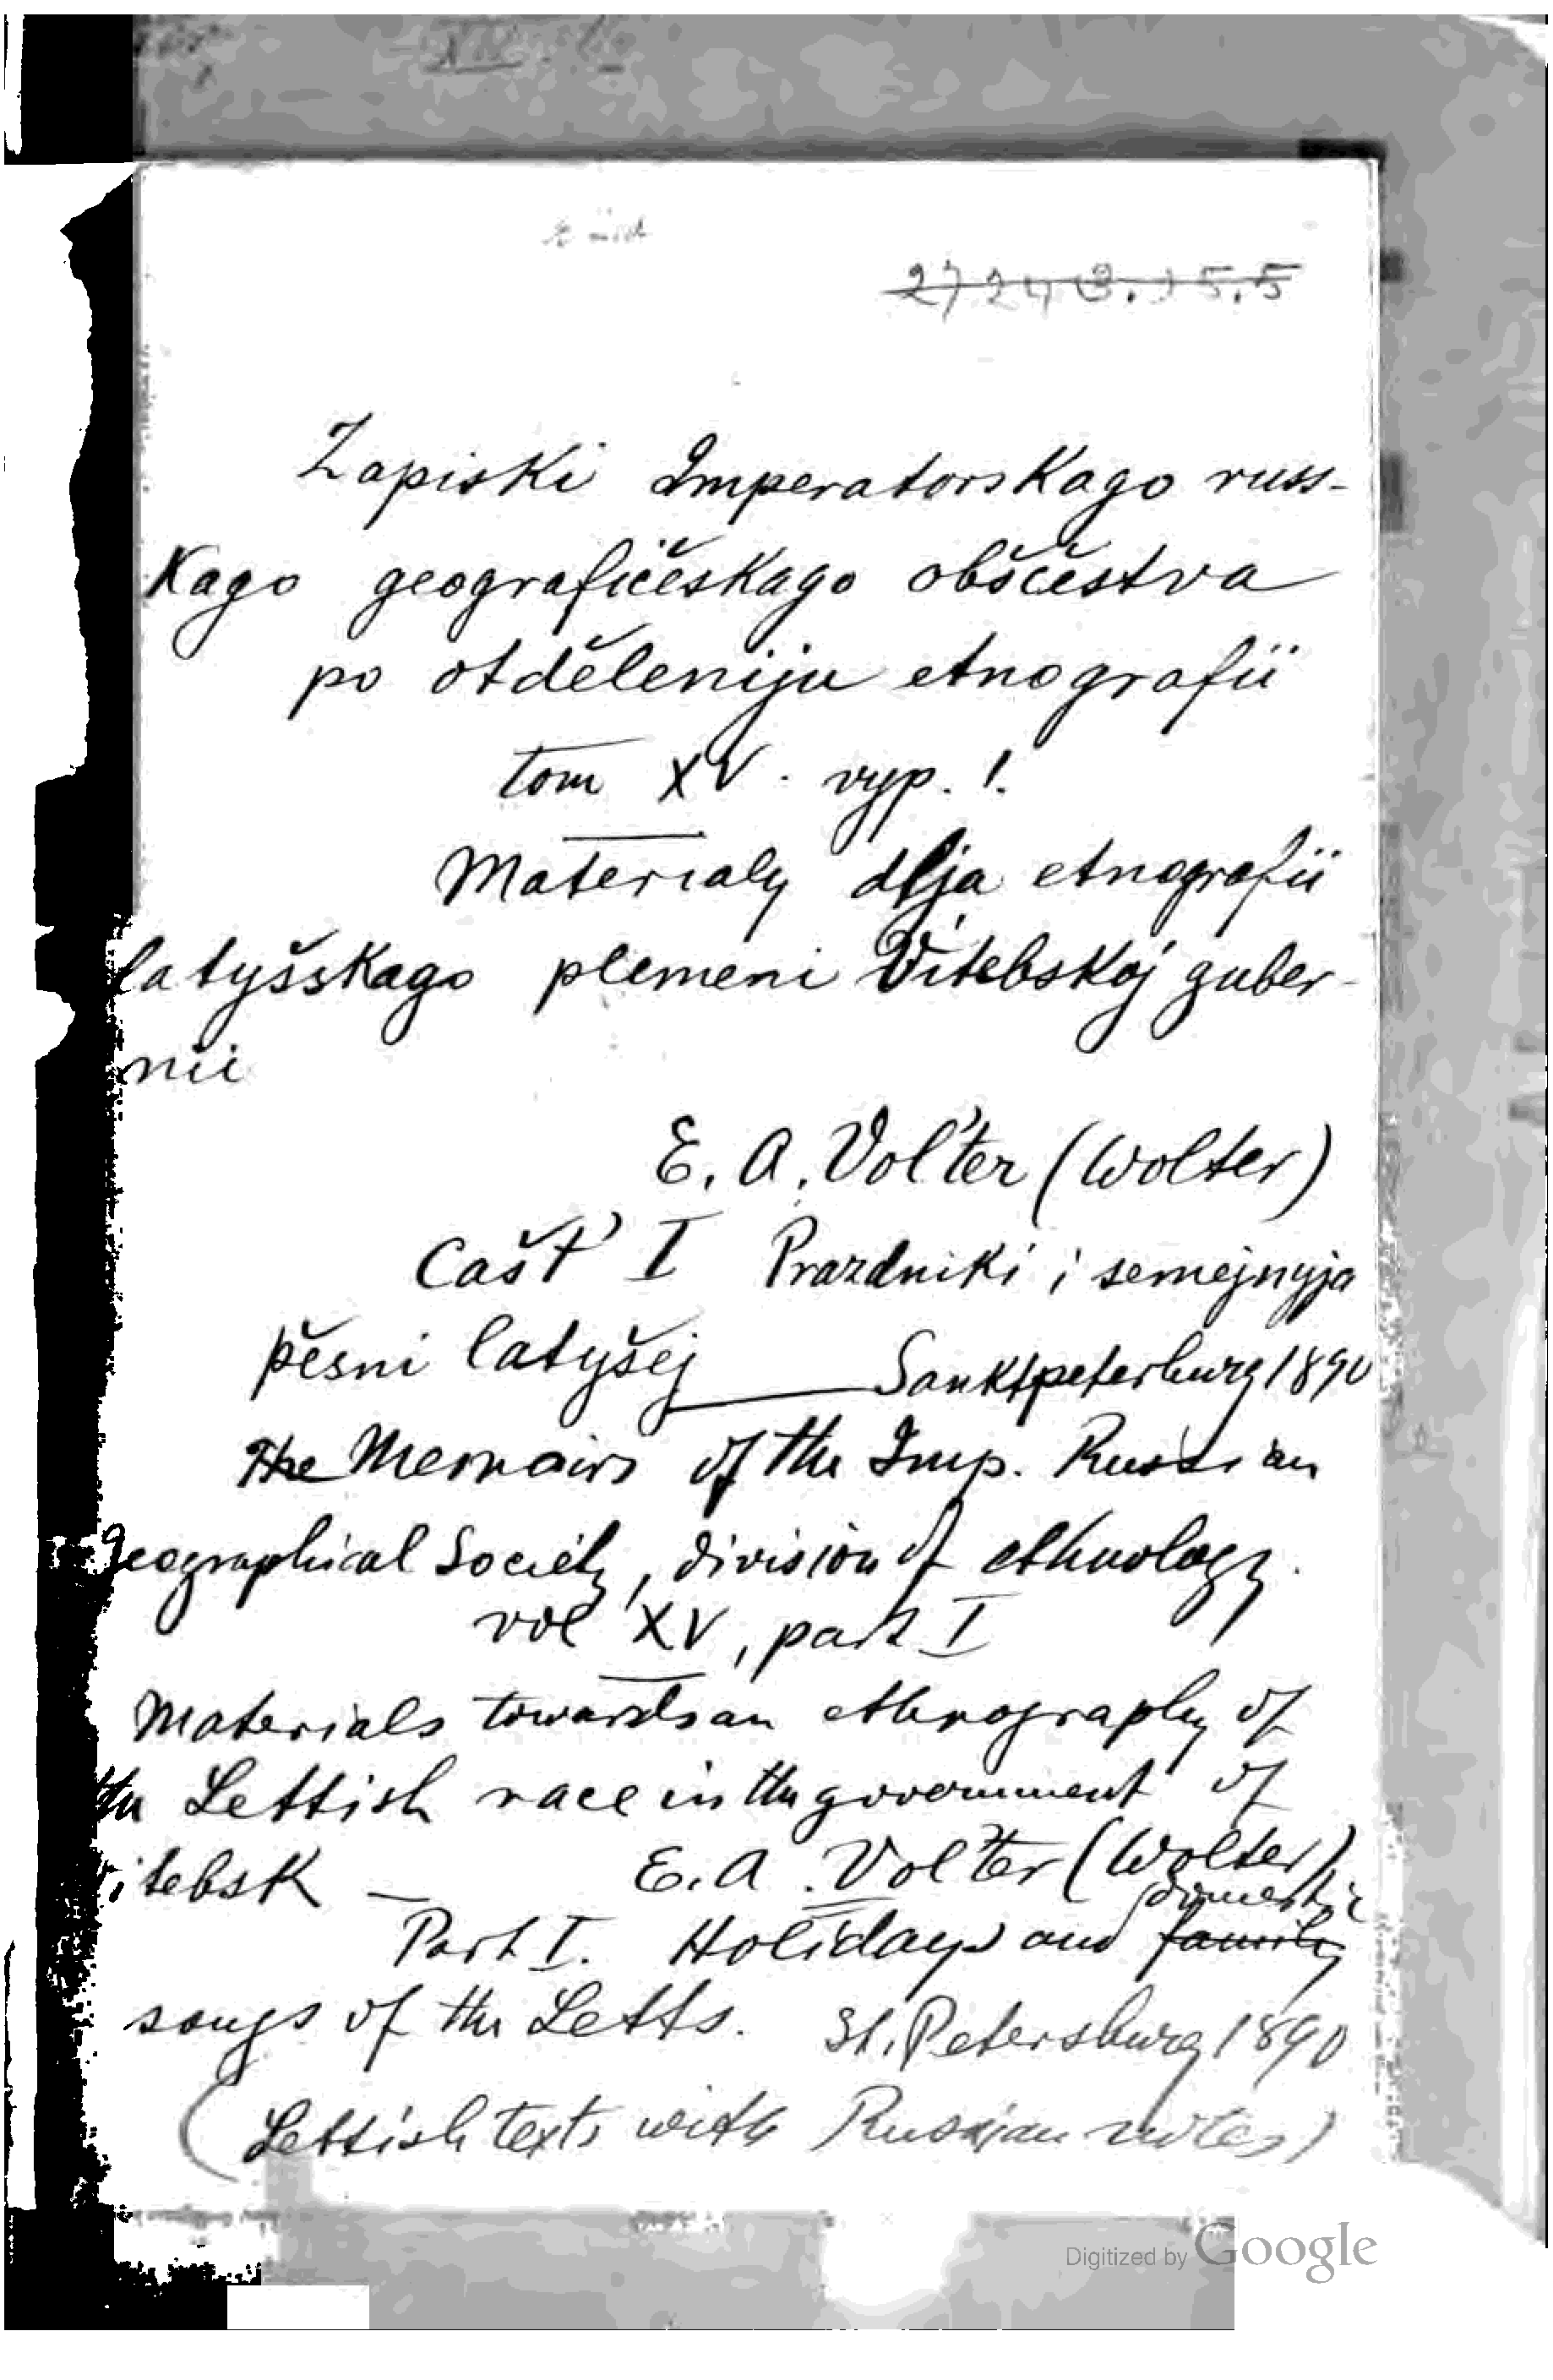 27243.15.5
Zapiski Imperatorskago russ-
kago geografičeskago obščestva
po otděleniju etnografii
tom XV. vyp. 1.
Materialy dlja etnografii
latyšskago plemeni Vitebskoj guber-
nii
E. A. Vol'ter (Wolter)
Čast' I Prazdniki i semejnyja
pěsni latyšej Sanktpeterburg 1890
The Memoirs of the Imp. Russian
geographical Society, division of ethnology.
vol XV, part I
Materials towards an ethnography of
the Lettish race in the government of
itebsk — E. A. Vol'ter (Wolter)
domestic
Part I. Holidays and family
songs of the Letts. St. Petersburg 1890
(Lettish texts with Russian notes)
Digitized by Google